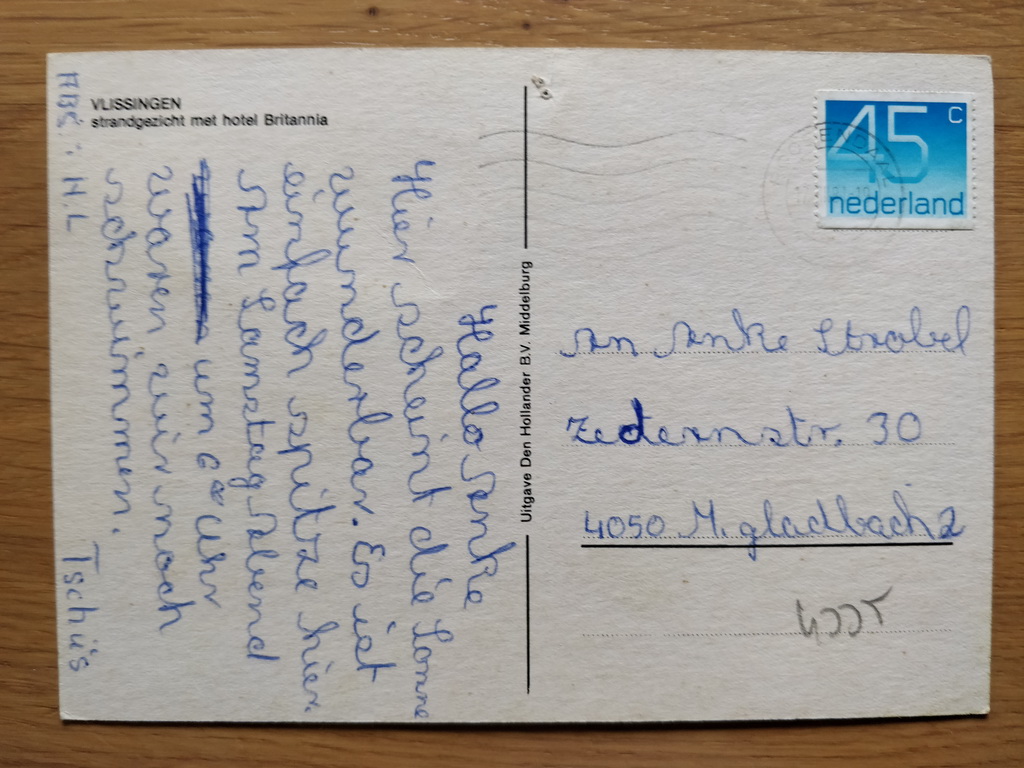 VLISSINGEN
strandgezicht met hotel Britannia
Hallo Anke
Hier scheint die Sonne
wunderbar. Es ist
einfach spitze hier.
Am Samstag Abend
um 6 Uhr
waren wir noch
schwimmen.
Tschüs
ABS.: H.L
Uitgave Den Hollander B.V. Middelburg
45 c
nederland
An Anke Strobel
Zedernstr. 30
4050 M. gladbach 2